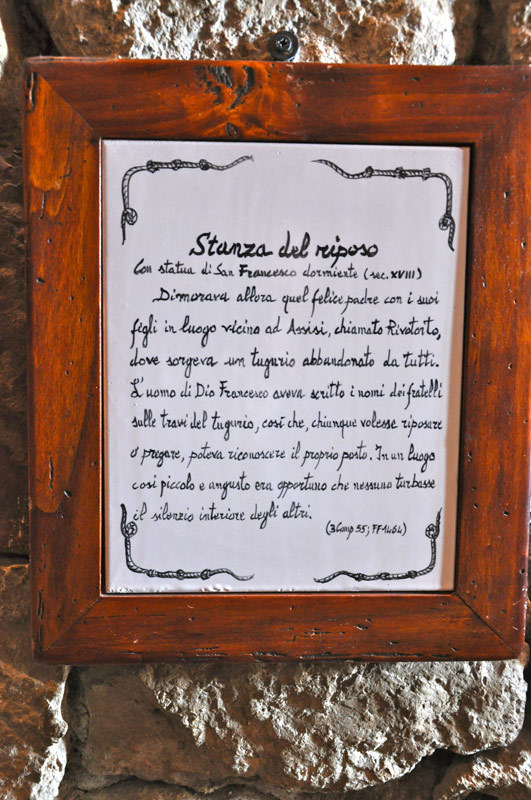 Stanza del riposo
Con statua di San Francesco dormiente (sec. XVIII)
Dimorava allora quel felice padre con i suoi
figli in luogo vicino ad Assisi, chiamato Rivotorto,
dove sorgeva un tugurio abbandonato da tutti.
L'uomo di Dio Francesco aveva scritto i nomi dei fratelli
sulle travi del tugurio, così che, chiunque volesse riposare
o pregare, poteva riconoscere il proprio posto. In un luogo
così piccolo e angusto era opportuno che nessuno turbasse
il silenzio interiore degli altri.
(3Comp 55; FF1464)